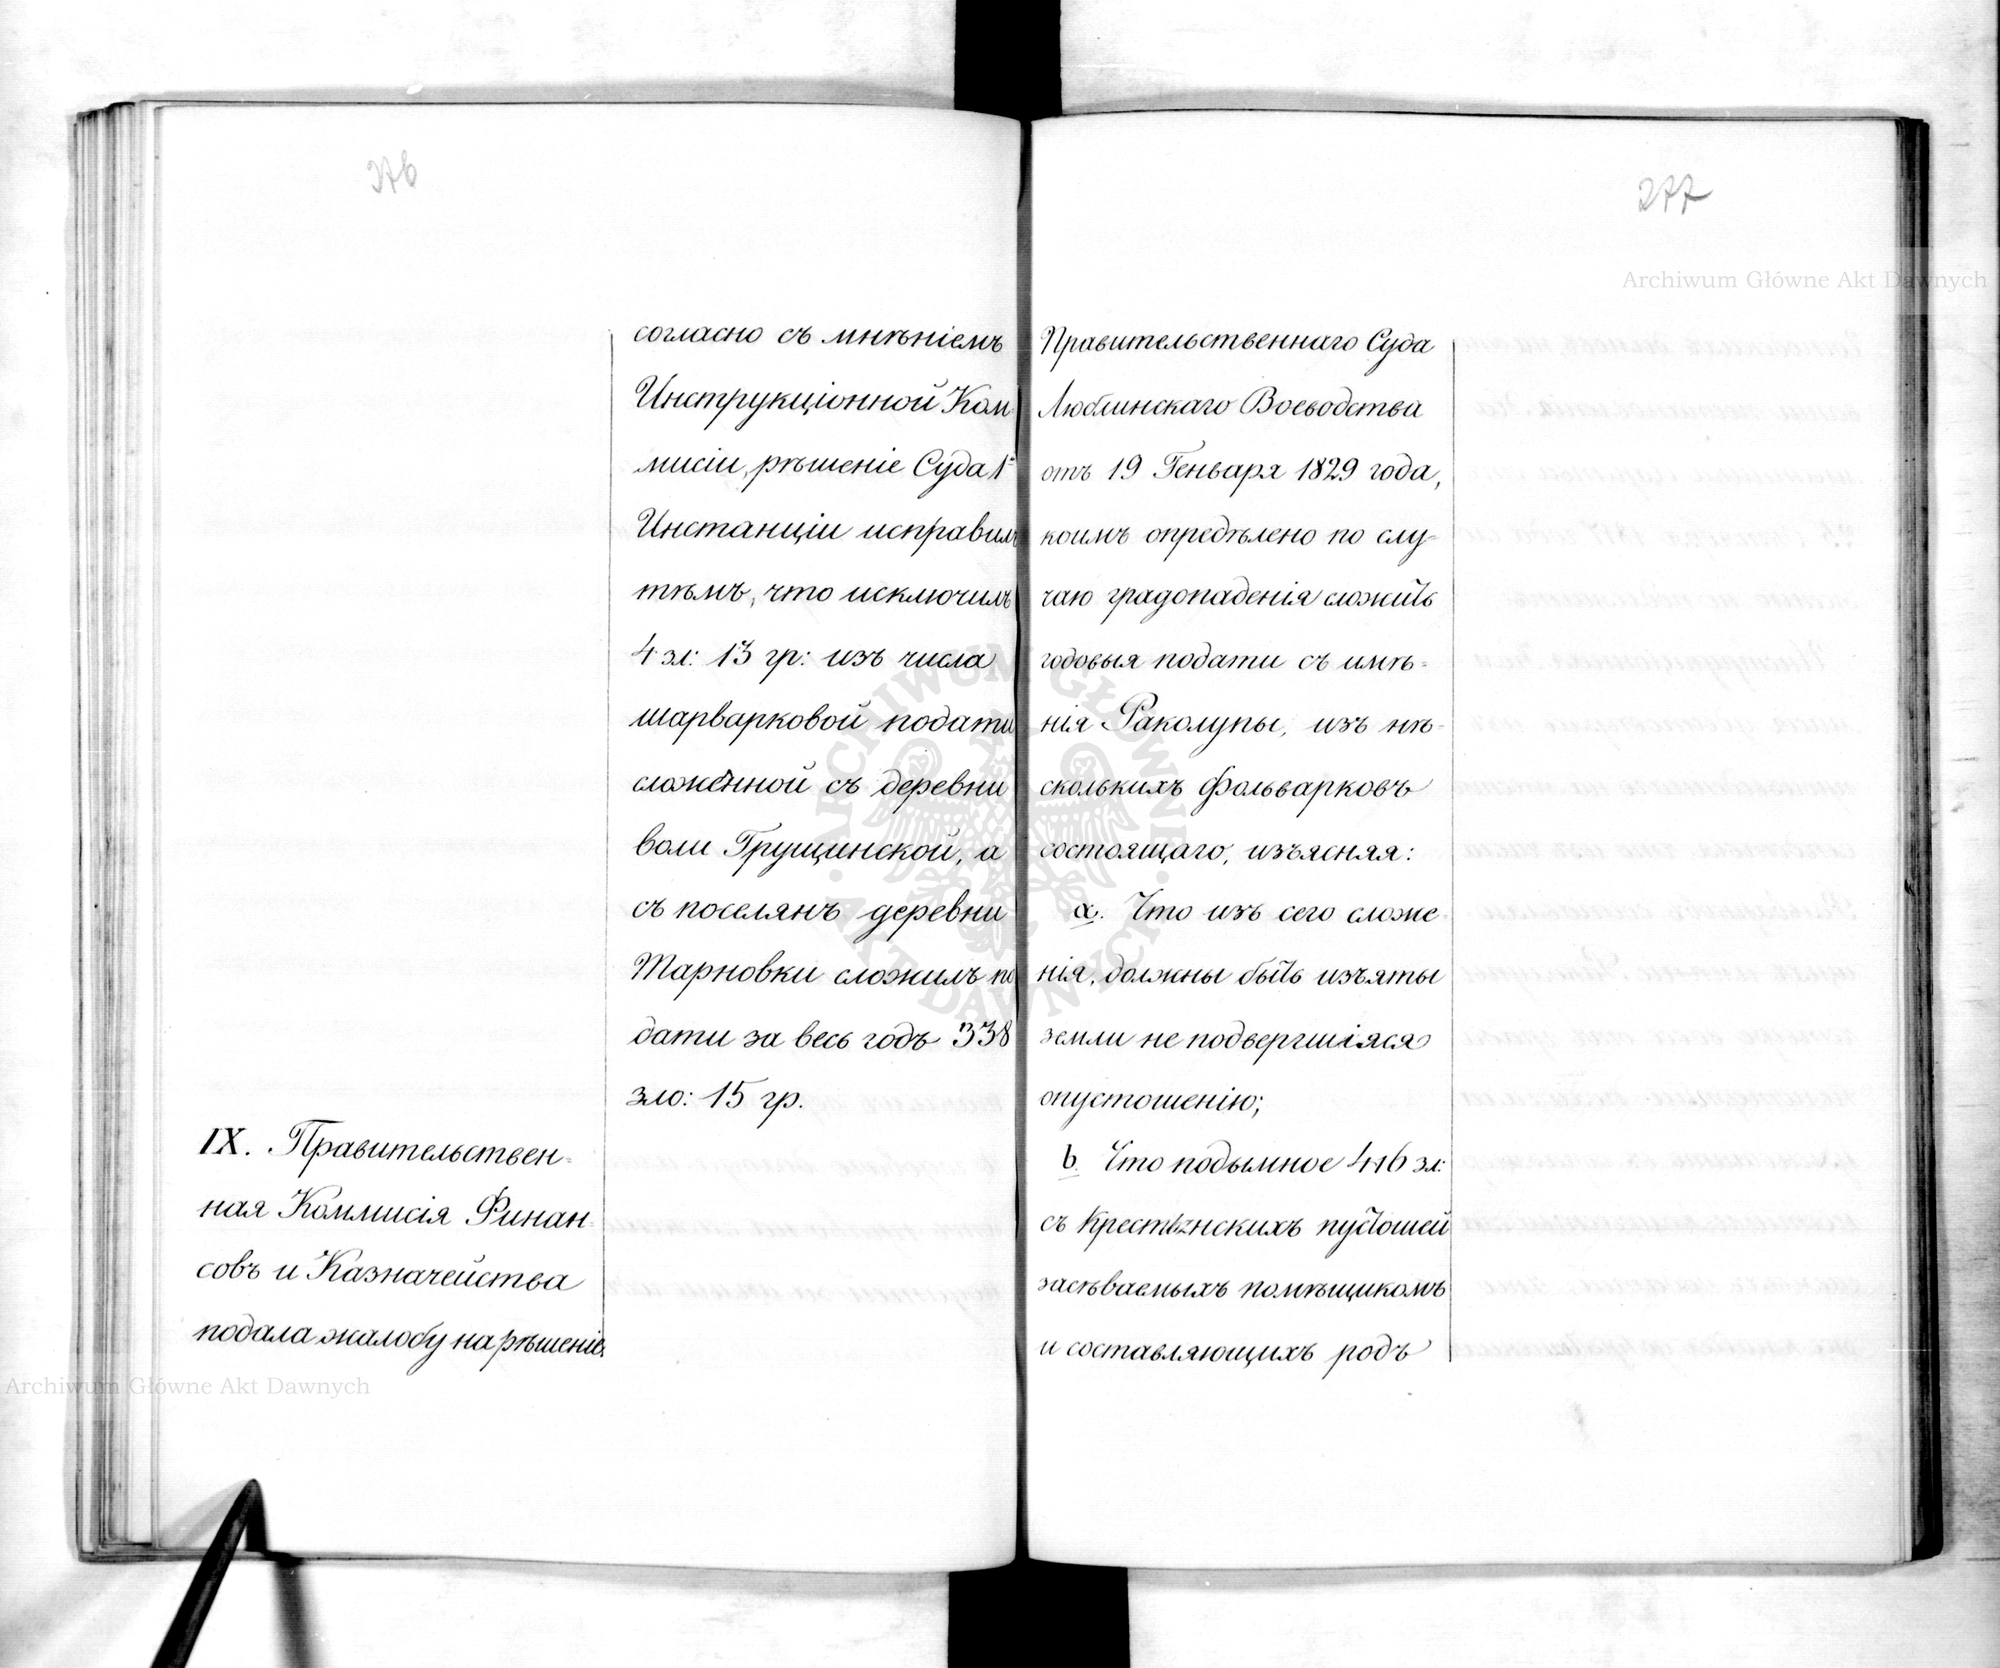 276
согласно съ мнѣніемъ
Инструкціонной Ком
мисіи, рѣшеніе Суда 1й
Инстанціи исправилъ
тѣмъ, что исключилъ
4 зл: 13 гр: изъ числа
шарварковой подати
сложенной съ деревни
воли Грущинской, а
съ поселянъ деревни
Тарновки сложилъ по
дати за весь годъ 338
зло: 15 гр.
IX. Правительствен-
ная Коммисія Финан-
совъ и Казначейства
подала жалобу на рѣшеніе
277
Правительственнаго Суда
Люблинскаго Воеводства
отъ 19 Генваря 1829 года,
коимъ опредѣлено по слу-
чаю градопаденія сложить
годовыя подати съ имѣ-
нія Раколупы, изъ нѣ-
сколькихъ фольварковъ
состоящаго, изъясняя:
a. Что изъ сего сложе-
нія, должны быть изъяты
земли не подвергшіяся
опустошенію;
b. Что подымное 416 зл:
съ Крестьянскихъ пустошей
засѣваемыхъ помѣщикомъ
и составляющихъ родъ
Archiwum Główne Akt Dawnych
Archiwum Główne Akt Dawnych
ARCHIWUM GŁÓWNE AKT DAWNYCH